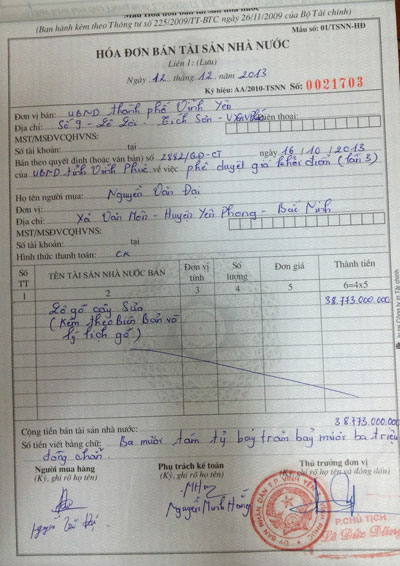 Mẫu Hóa đơn bán tài sản nhà nước
(Ban hành kèm theo Thông tư số 225/2009/TT-BTC ngày 26/11/2009 của Bộ Tài chính)
Mẫu số: 01/TSNN-HĐ
HÓA ĐƠN BÁN TÀI SẢN NHÀ NƯỚC
Liên 1: (Lưu)
Ngày 12 tháng 12 năm 2013
Ký hiệu: AA/2010-TSNN Số: 0021703
Đơn vị bán: UBND thành phố Vĩnh Yên
Địa chỉ: Số 9 - Lê Lợi - Tích Sơn - Điện thoại:
MST/MSĐVCQHVNS:
Số tài khoản: tại
Bán theo quyết định (hoặc văn bản) số 2882/QĐ-CT ngày 16/10/2013
của UBND tỉnh Vĩnh Phúc về việc phê duyệt giá khởi điểm (lần 3)
Họ tên người mua: Nguyễn Văn Đại
Đơn vị:
Địa chỉ: Xã Văn Môn - Huyện Yên Phong - Bắc Ninh
MST/MSĐVCQHVNS:
Số tài khoản: tại
Hình thức thanh toán: CK
Số TT TÊN TÀI SẢN NHÀ NƯỚC BÁN Đơn vị tính Số lượng Đơn giá Thành tiền
1 2 3 4 5 6=4x5
Lô gỗ cây Sưa 38.773.000.000
(Kèm theo Biên Bản và
lý lịch gỗ)
Cộng tiền bán tài sản nhà nước: 38.773.000.000
Số tiền viết bằng chữ: Ba mươi tám tỷ bảy trăm bảy mươi ba triệu
đồng chẵn.
Người mua hàng Phụ trách kế toán Thủ trưởng đơn vị
(Ký, ghi rõ họ tên) (Ký, ghi rõ họ tên) (Ký, ghi rõ họ tên, đóng dấu)
Nguyễn Minh Hồng
P.CHỦ TỊCH
Lê Đức Dũng